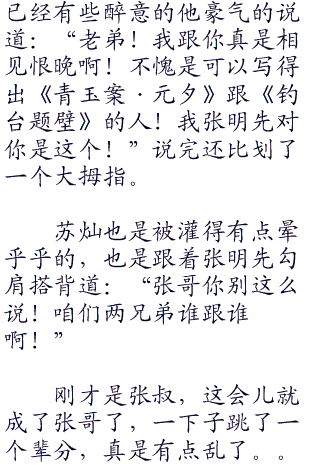 已经有些醉意的他豪气的说
道：“老弟！我跟你真是相
见恨晚啊！不愧是可以写得
出《青玉案·元夕》跟《钓
台题壁》的人！我张明先对
你是这个！”说完还比划了
一个大拇指。
苏灿也是被灌得有点晕
乎乎的，也是跟着张明先勾
肩搭背道：“张哥你别这么
说！咱们两兄弟谁跟谁
啊！”
刚才是张叔，这会儿就
成了张哥了，一下子跳了一
个辈分，真是有点乱了。。